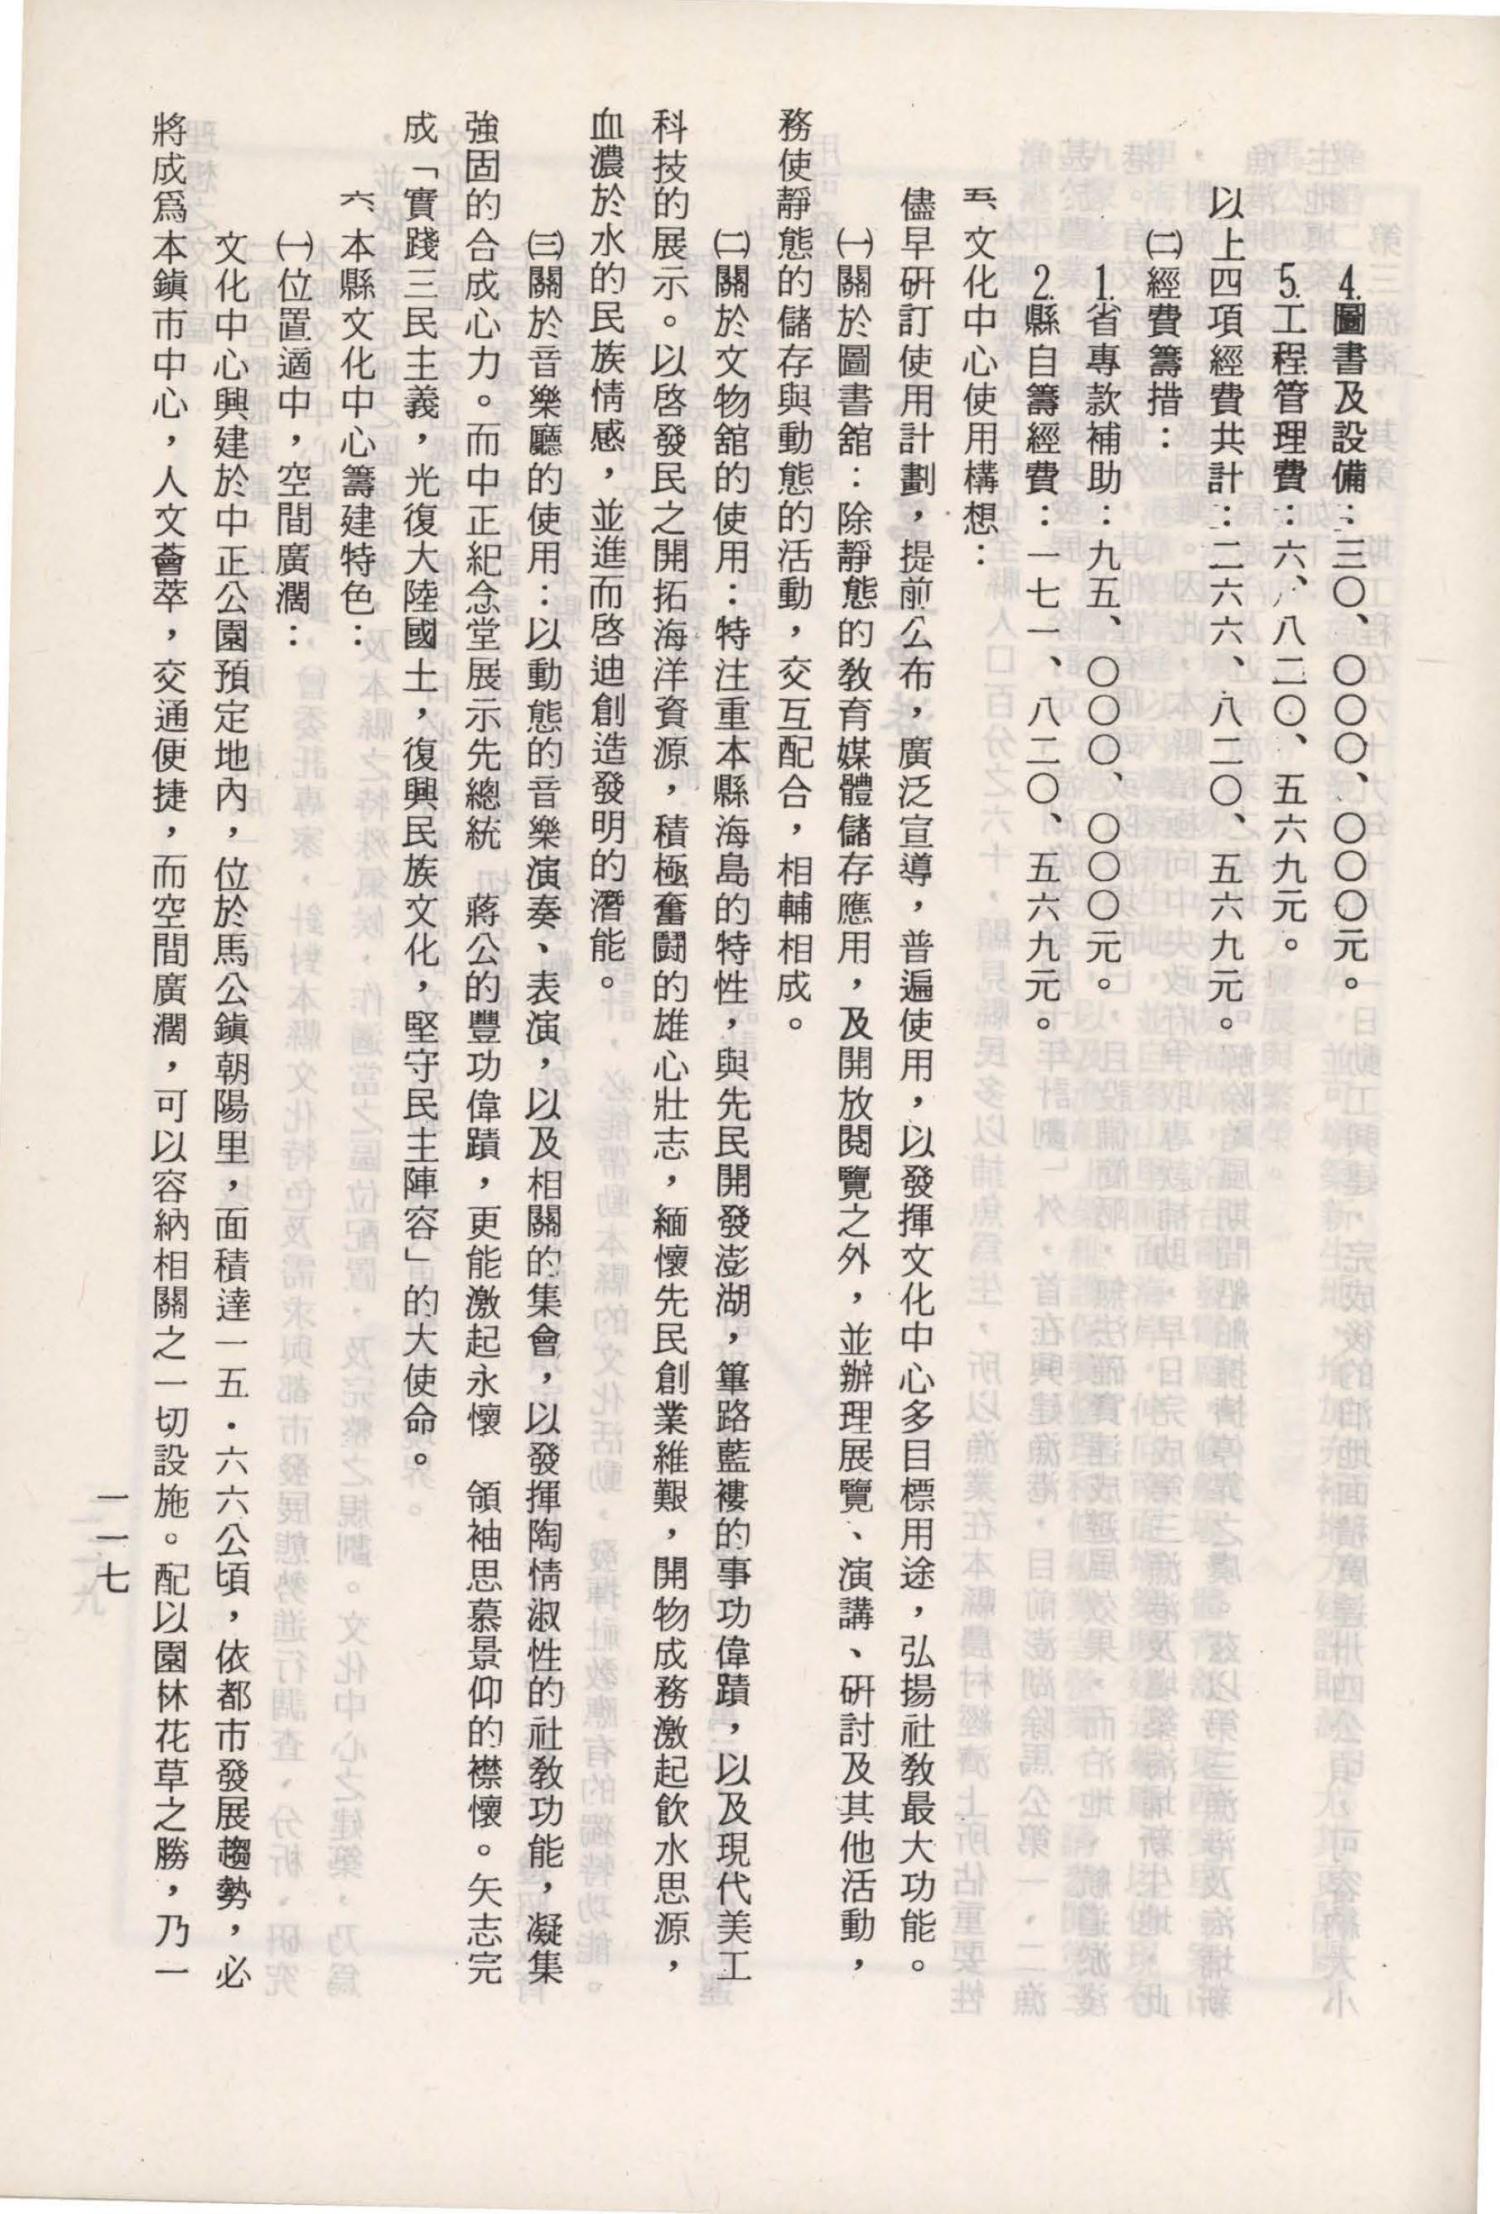 4.圖書及設備：三〇、〇〇〇、〇〇〇元。
5.工程管理費：六、八二〇、五六九元。
以上四項經費共計：二六六、八二〇、五六九元。
㈡經費籌措：
1.省專款補助：九五、〇〇〇、〇〇〇元。
2.縣自籌經費：一七一、八二〇、五六九元。
五、文化中心使用構想：
儘早研訂使用計劃，提前公布，廣泛宣導，普遍使用，以發揮文化中心多目標用途，弘揚社教最大功能。
㈠關於圖書舘：除靜態的教育媒體儲存應用，及開放閱覽之外，並辦理展覽、演講、研討及其他活動，
務使靜態的儲存與動態的活動，交互配合，相輔相成。
㈡關於文物舘的使用：特注重本縣海島的特性，與先民開發澎湖，篳路藍褸的事功偉蹟，以及現代美工
科技的展示。以啓發民之開拓海洋資源，積極奮鬪的雄心壯志，緬懷先民創業維艱，開物成務激起飲水思源，
血濃於水的民族情感，並進而啓迪創造發明的潛能。
㈢關於音樂廳的使用：以動態的音樂演奏、表演，以及相關的集會，以發揮陶情淑性的社教功能，凝集
強固的合成心力。而中正紀念堂展示先總統　蔣公的豐功偉蹟，更能激起永懷　領袖思慕景仰的襟懷。矢志完
成「實踐三民主義，光復大陸國土，復興民族文化，堅守民主陣容」的大使命。
六、本縣文化中心籌建特色：
㈠位置適中，空間廣濶：
文化中心興建於中正公園預定地內，位於馬公鎮朝陽里，面積達一五．六六公頃，依都市發展趨勢，必
將成爲本鎮市中心，人文薈萃，交通便捷，而空間廣濶，可以容納相關之一切設施。配以園林花草之勝，乃一
一一七